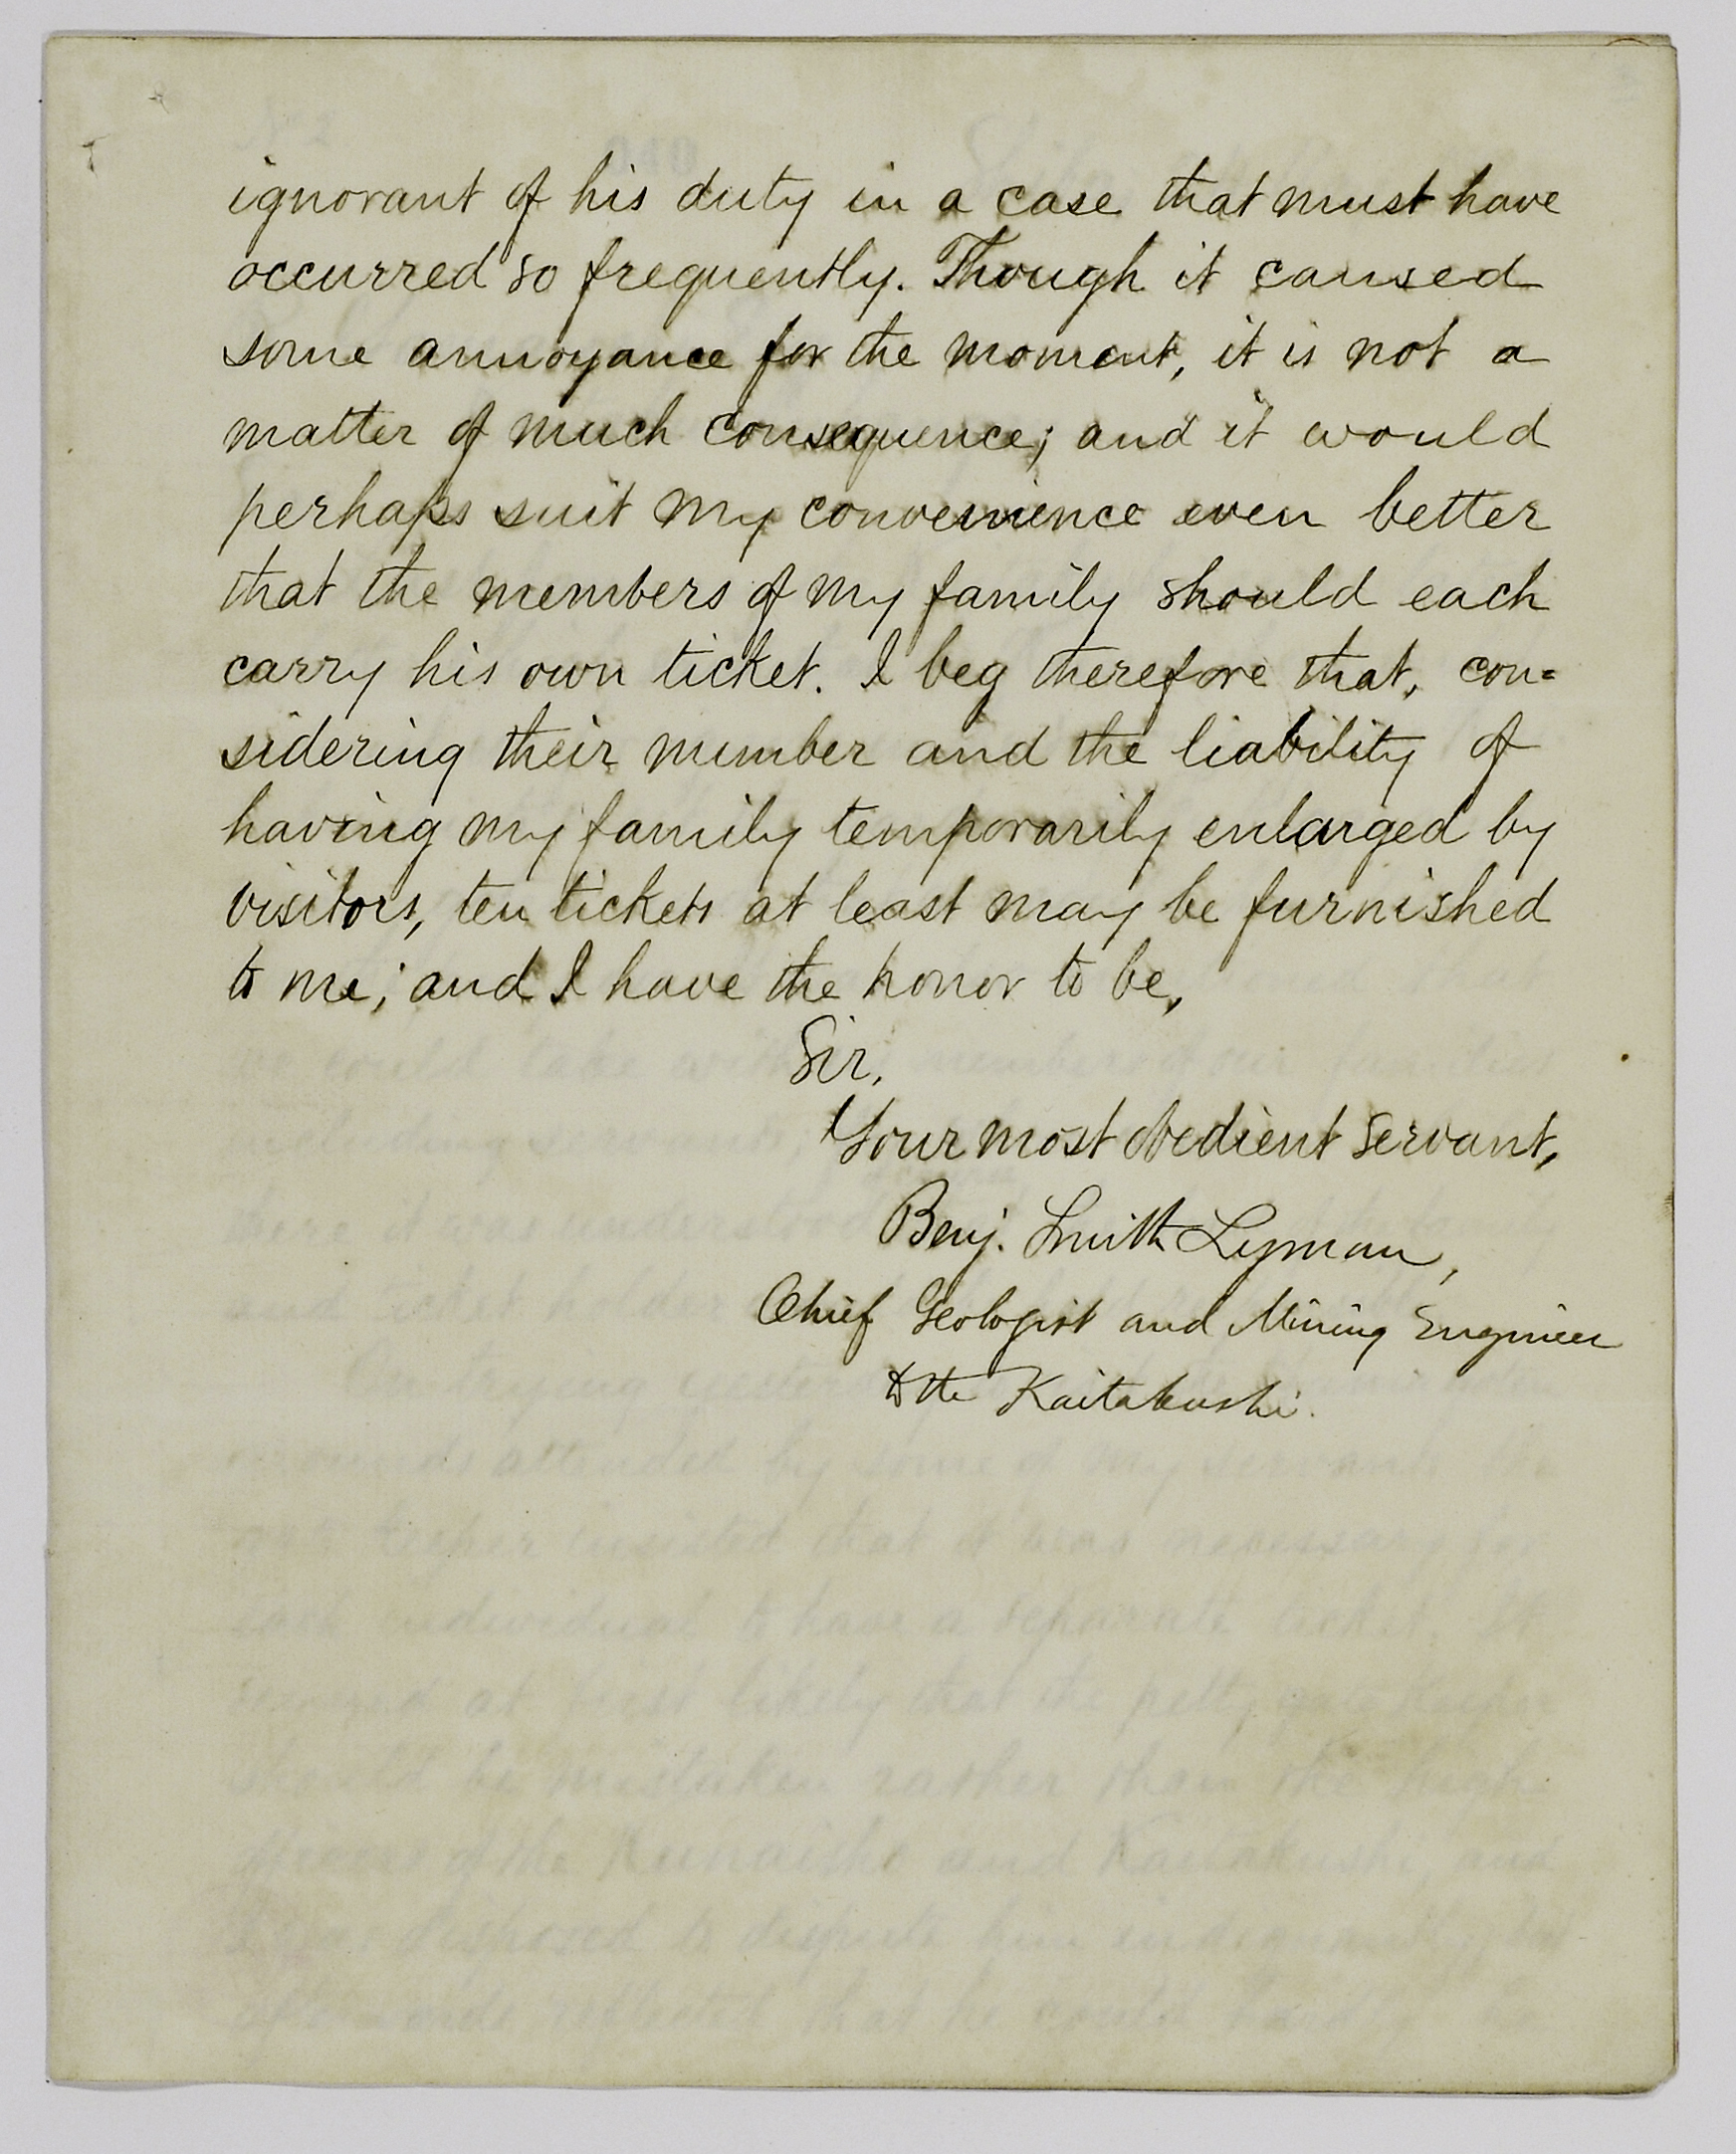 ignorant of his duty in a case that must have
occurred so frequently. Though it caused
some annoyance for the moment, it is not a
matter of much consequence; and it would
perhaps suit my convenience even better
that the members of my family should each
carry his own ticket. I beg therefore that, con=
sidering their number and the liability of
having my family temporarily enlarged by
visitors, ten tickets at least may be furnished
to me; and I have the honor to be,
Sir,
Your most obedient servant,
Benj. Smith Lyman,
Chief Geologist and Mining Engineer
to the Kaitakushi.